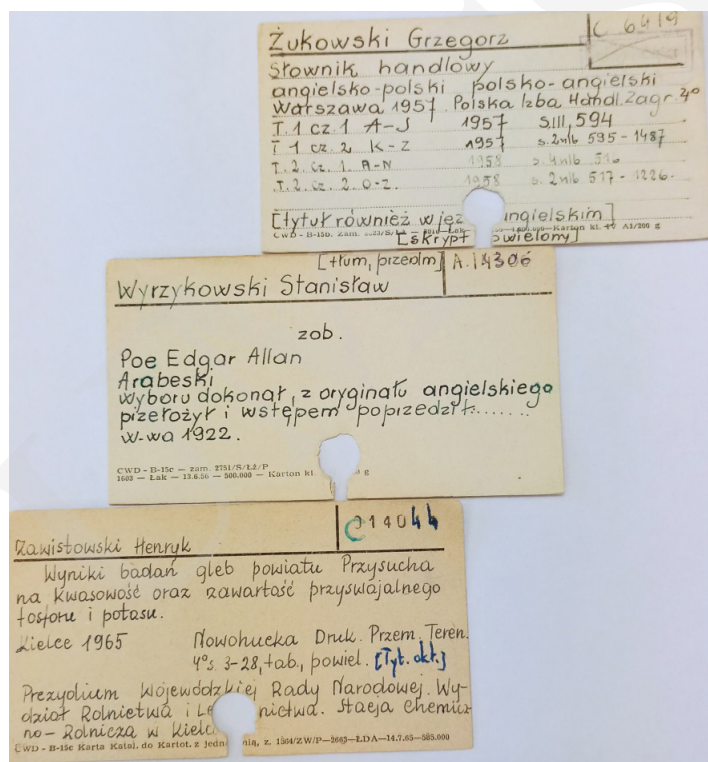 Żukowski Grzegorz
C 6419
Słownik handlowy
angielsko-polski polsko-angielski
Warszawa 1957. Polska Izba Handl. Zagr. 4°
T. 1 cz. 1 A-J 1957 s. III, 594
T 1 cz. 2 K-Z 1957 s. 2nlb 595-1487
T. 2. cz. 1. A-N 1958 s. 4nlb 516
T. 2. cz. 2 O-Z. 1958 s. 2nlb 517-1226.
[tytuł również w jęz ingielskim]
CWD - B-15b. Zam. Karton kl. A1/200 g
[skrypt owielony]
[tłum, przedm] A.14306
Wyrzykowski Stanisław
zob.
Poe Edgar Allan
Arabeski
wyboru dokonał, z oryginału angielskiego
przełożył i wstępem poprzedził.......
W-wa 1922.
CWD - B-15c — zam. 2751/S/Ł2/P
1603 — Łak — 13.6.56 — 500.000 — Karton kl. g
C 14044
Zawistowski Henryk
Wyniki badań gleb powiatu Przysucha
na kwasowość oraz zawartość przyswajalnego
fosforu i potasu.
Kielce 1965 Nowohucka Druk. Przem. Teren.
4° s. 3-28, tab., powiel. [Tyt. okł.]
Prezydium Wojewódzkiej Rady Narodowej. Wy-
dział Rolnictwa i Le nictwa. Stacja Chemicz
no-Rolnicza w Kielc
CWD - B-15c Karta Katal. do Kartot. z jedn nią, z. 1364/ZW/P—2663—ŁDA—14.7.65—585.000